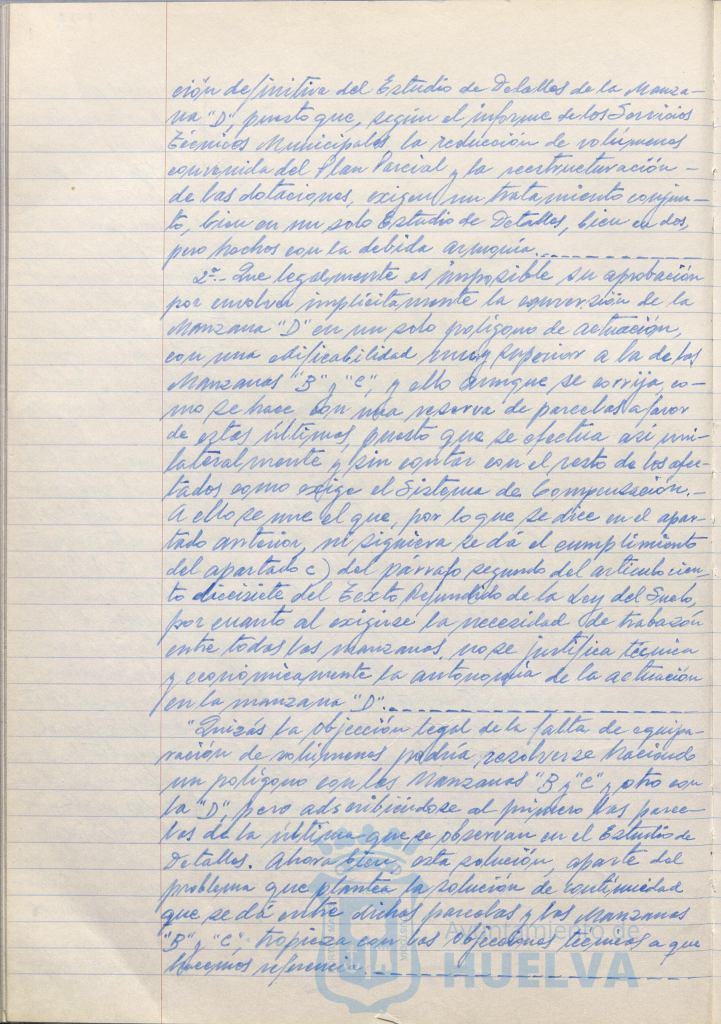 ción definitiva del Estudio de Detalles de la Manza-
na "D", puesto que, según el informe de los Servicios
Técnicos Municipales, la reducción de volúmenes
convenida del Plan Parcial y la reestructuración -
de las dotaciones, exigen un tratamiento conjun-
to, bien en un solo Estudio de Detalles, bien en dos,
pero hechos con la debida armonía.
2º.- Que legalmente es imposible su aprobación
por envolver implícitamente la conversión de la
Manzana "D" en un solo polígono de actuación,
con una edificabilidad muy superior a la de las
Manzanas "B" y "C", y ello aunque se corrija, co-
mo se hace, con una reserva de parcelas a favor
de estas últimas, puesto que se efectua así uni-
lateralmente y sin contar con el resto de los afec-
tados como exige el Sistema de Compensación.-
A ello se une el que, por lo que se dice en el apar-
tado anterior, ni siquiera se dá el cumplimiento
del apartado c) del párrafo segundo del artículo cien-
to diecisiete del Texto Refundido de la Ley del Suelo,
por cuanto al exigirse la necesidad de trabazón
entre todas las manzanas, no se justifica técnica
y económicamente la autonomía de la actuación
en la manzana "D".
"Quizás la objeción legal de la falta de equipa-
ración de volúmenes podría resolverse haciendo
un polígono con las Manzanas "B" y "C" y otro con
la "D", pero adscribiéndose al primero las parce-
las de la última que se observan en el Estudio de
Detalles. Ahora bien, esta solución, aparte del
problema que plantea la solución de continuidad
que se dá entre dichas parcelas y las Manzanas
"B" y "C", tropieza con las objeciones técnicas a que
hacemos referencia.
Ayuntamiento de
HUELVA